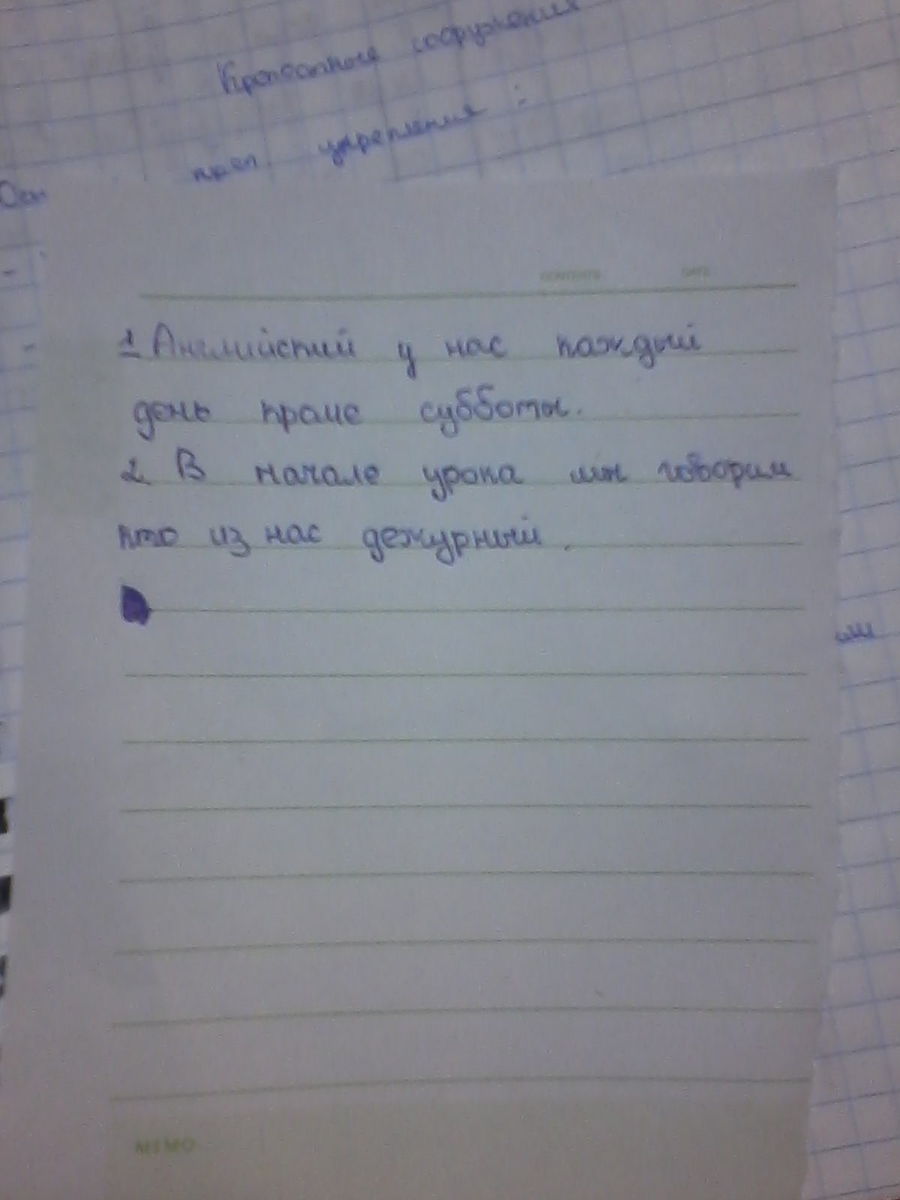 Крепостные сооружения
креп укрепления :
Осн
CONTENTS DATE
1 Английский у нас каждый
день краме субботы.
2 В начале урока мы говорим
кто из нас дежурный.
ыми
MEMO